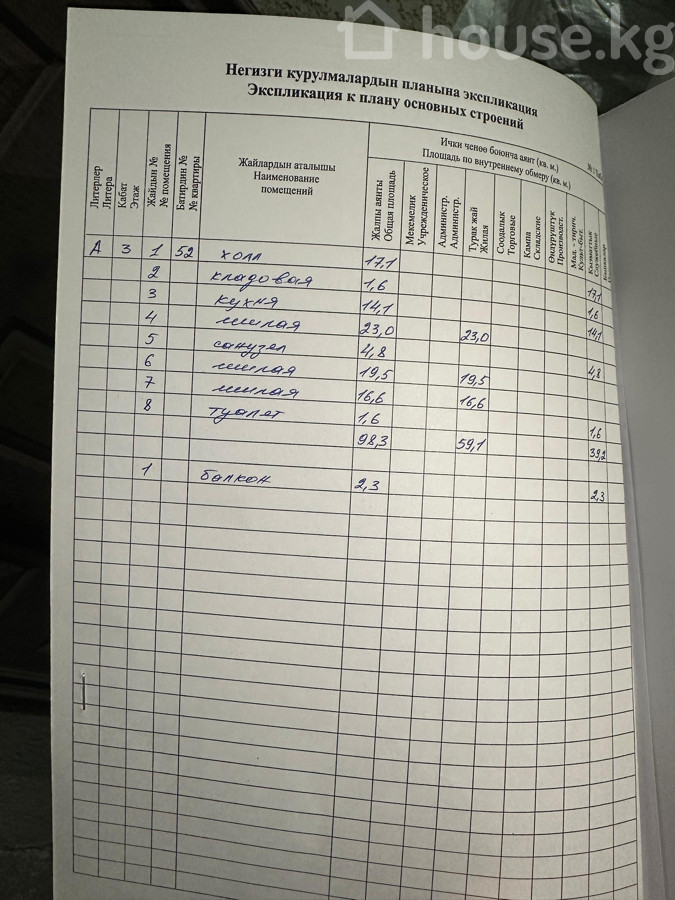 house.kg
Негизги курулмалардын планына экспликация
Экспликация к плану основных строений
Литерлер
Литера
Кабат
Этаж
Жайдын №
№ помещения
Батирдин №
№ квартиры
Жайлардын аталышы
Наименование
помещений
Ички ченөө боюнча аянт (кв. м.)
Площадь по внутреннему обмеру (кв. м.)
Жалпы аянты
Общая площадь
Мекемелик
Учрежденическое
Администр.
Администр.
Турак жай
Жилая
Соодалык
Торговые
Кампа
Складские
Өндүрүштүк
Производст.
Мад. - тирич.
Культ-быт.
Кызматтык
Служебные
А 3 1 52 холл 17,1 17,1
2 кладовая 1,6 1,6
3 кухня 14,1 14,1
4 жилая 23,0 23,0
5 санузел 4,8 4,8
6 жилая 19,5 19,5
7 жилая 16,6 16,6
8 туалет 1,6 1,6
98,3 59,1 39,2
1 балкон 2,3 2,3